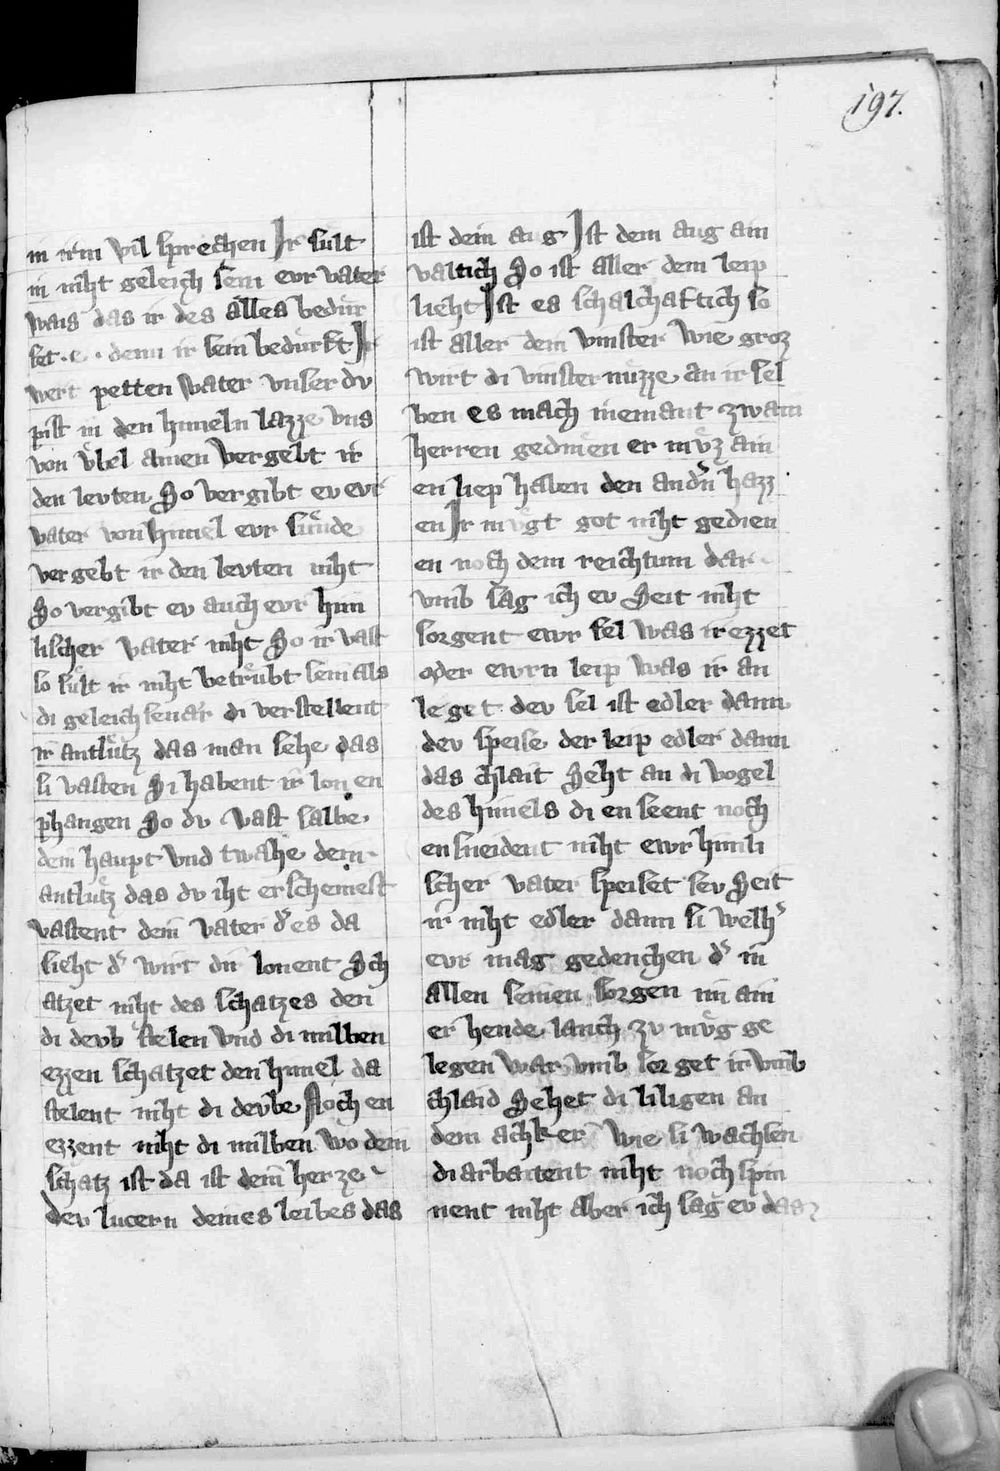 197.
in irm vil sprechen Ir sult
in niht geleich sein evr vater
wais das ir des alles bedur
fet · e · denn ir sein bedurft Ir
wert petten vater vnser dv
pist in den himeln lazze vns
von vͤbel amen Vergebt ir
den levten So vergibt ev evr
vater von himel evr suͤnde
vergebt ir den levten niht
So vergibt ev auch evr him
lischer vater niht So ir vast
so suͤlt ir niht betruͤbt sein als
di geleichsenaͤr di verstellent
ir antluͤtz das man sehe das
si vasten Si habent ir lon en
phangen So dv vast salbe
dein haupt vnd twahe dein
antluͤtz das dv iht erscheinest
vastent dein vater dˢ es da
sieht dˢ wirt dir lonent Sch
atzet niht des schatzes den
di devb stelen vnd di milben
ezzen schatzet den himel da
stelent niht di devbe Noch en
ezzent niht di milben wo dein
schatz ist da ist dein herze
Dev lucern deines leibes das
ist dein aug Ist dein aug ain
valtich So ist aller dein leip
lieht Ist es schalchaftich so
ist aller dein vinster wie groz
wirt di vinsternuͤzze an ir sel
ben es mach niemant zwain
herren gedinen er muͤz ain
en liep haben den andˢn hazz
en Ir muͤgt got niht gedien
en noch dem reichtum dar
vmb sag ich ev Seit niht
sorgent ewr sel was ir ezzet
oder ewrn leip was ir an
leget dev sel ist edler dann
dev speise der leip edler dann
das chlait Seht an di vogel
des himels di en seent noch
en sneident niht ewr himli
scher vater speiset sev Seit
ir niht edler dann si welhˢ
evr mag gedenchen dˢ in
allen seinen sorgen im ain
er hende lanch zv muͤg ge
legen war vmb sorget ir vmb
chlaid Sehet di liligen an
dem achker wie si wachsen
di arbaitent niht noch spin
nent niht aber ich sag ev das